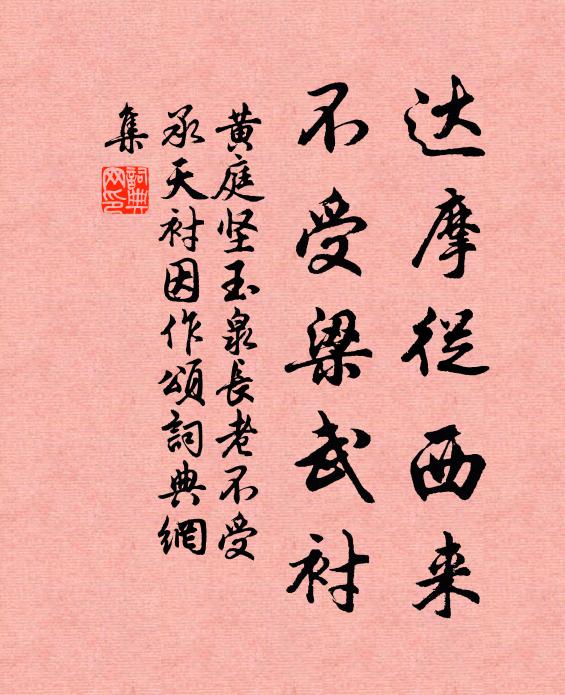 达摩從西来
不受梁武衬
黄庭坚玉泉長老不受
承天衬因作頌詞典網
集
詞典
网印